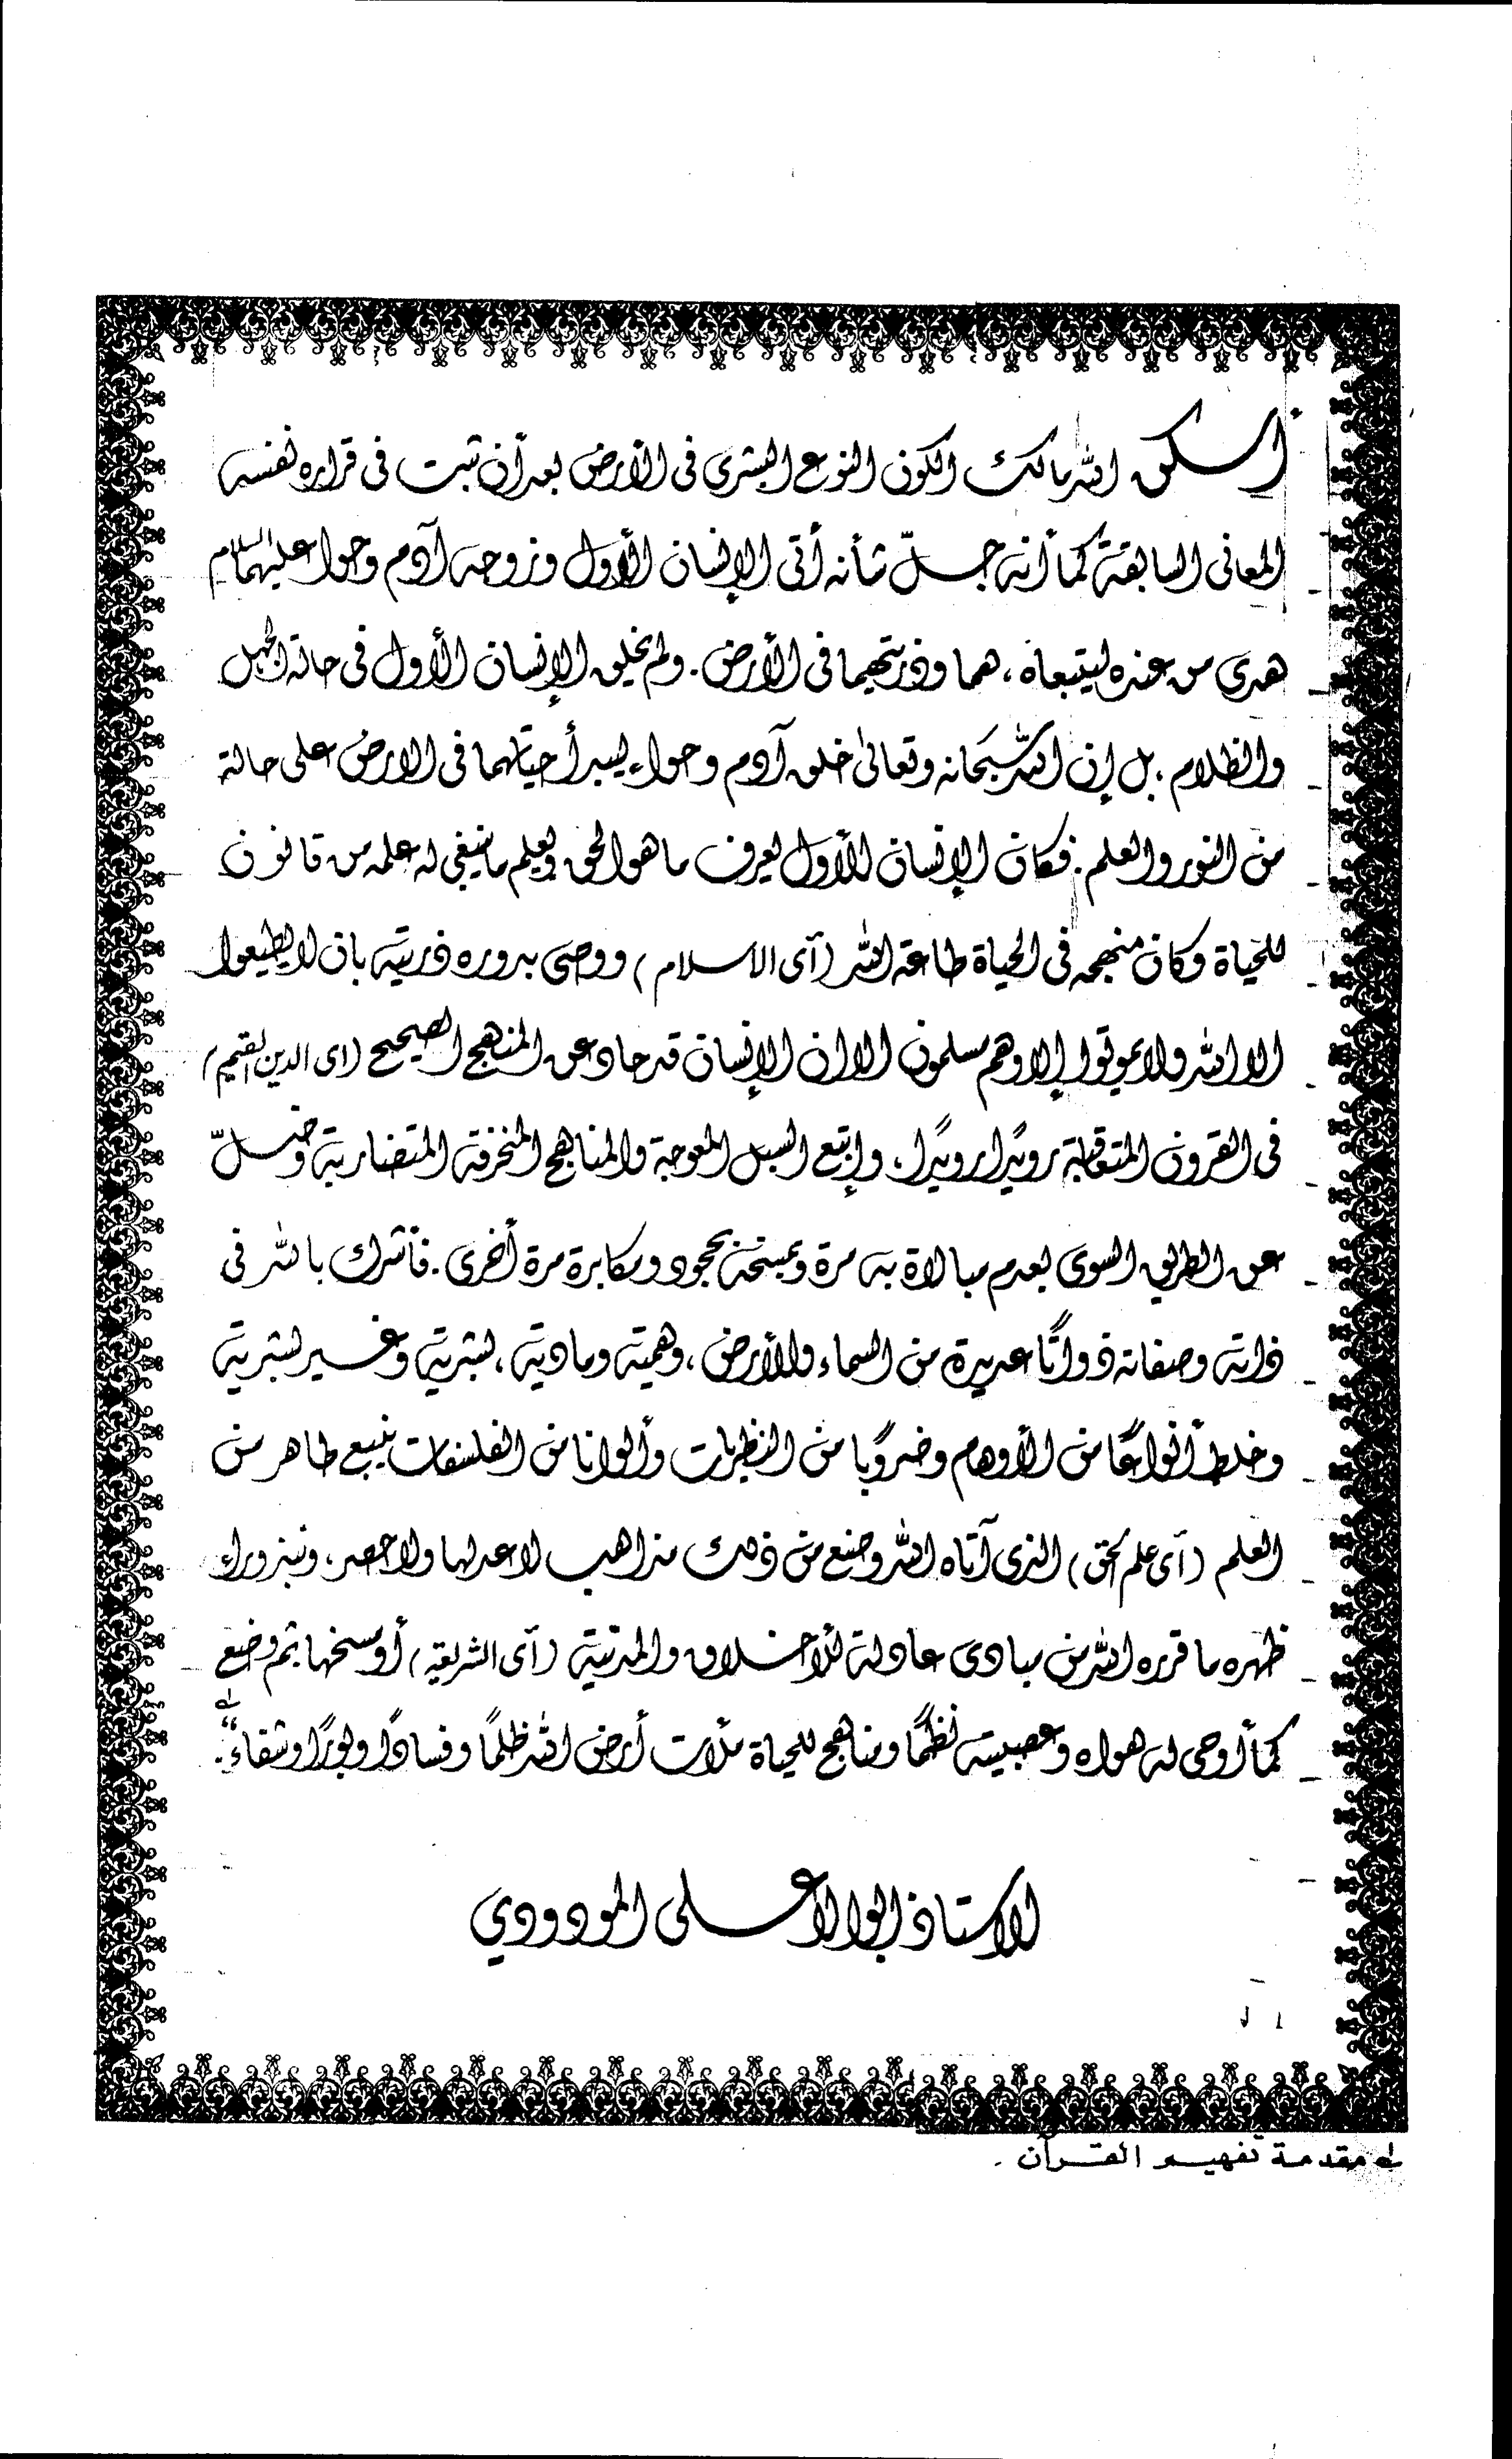 أسكن الله مالك الكون النوع البشرى فى الأرض بعد أن ثبت فى قراره نفسه
المعانى السابقة كما أنه جلّ شأنه أتى الإنسان الأول وزوجه آدم وحواء عليهما السلام
هدى من عنده ليتبعاه ، هما وذريتهما فى الأرض . ولم يخلق الإنسان الأول فى حالة الجهل
والظلام ، بل إن الله سبحانه وتعالى خلق آدم وحواء ليبدأ حياتهما فى الارض على حالة
من النور والعلم . فكان الإنسان الأول يعرف ما هو الحق ويعلم ما ينبغى له علمه من قانون
للحياة وكان منهجه فى الحياة طاعة الله (آى الاسلام) ووصى بدوره ذريته بان لا يطيعوا
الا الله ولا يموتوا إلا وهم مسلمون الا ان الإنسان قد حاد عن المنهج الصحيح (اى الدين القيم)
فى القرون المتعاقبة رويدًا رويدًا ، وإتبع السبل المعوجة والمناهج المنحرفة المتضاربة وضلّ
عن الطريق السوى بعدم مبالاة به مرة وبجحود ومكابرة مرة أخرى . فأشرك بالله فى
ذاته وصفاته ذواتًا عديدة من السماء والأرض ، وهمية ومادية ، بشرية وغير بشرية
وخلط أنواعًا من الأوهام وضروبًا من النظريات وألوانا من الفلسفات بنبع طاهر من
العلم (آى علم الحق) الذى آتاه الله وصنع من ذلك مذاهب لا عد لها ولا حصر ، ونبذ وراء
ظهره ما قرره الله من مبادئ عادلة للأخلاق والمدنية (آى الشريعة) أو مسخها ثم وضع
كما أوحى له هواه وعصبيته نظمًا ومناهج للحياة ملأت أرض الله ظلمًا وفسادًا وبورًا وشقاء" .
الاستاذ ابوالاعلى المودودي
مقدمة تفهيم القرآن .